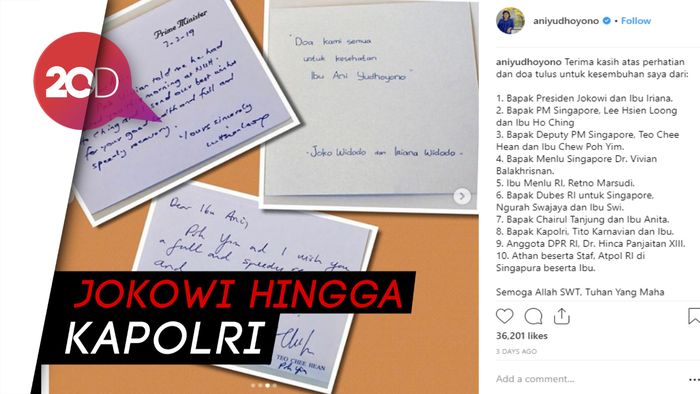 20D
Prime Minister
2-2-19
told me he had
morning at NUH.
send our best wishes
to Ching
for your good health and full and
speedy recovery.
Yours sincerely
"Doa kami semua
untuk kesehatan
Ibu Ani Yudhoyono"
- Joko Widodo dan Iriana Widodo -
Dear Ibu Ani,
Poh Yim and I wish you
a full and speedy
and
TEO CHEE HEAN
Poh Yim
JOKOWI HINGGA
KAPOLRI
aniyudhoyono • Follow
aniyudhoyono Terima kasih atas perhatian
dan doa tulus untuk kesembuhan saya dari:
1. Bapak Presiden Jokowi dan Ibu Iriana.
2. Bapak PM Singapore, Lee Hsien Loong
dan Ibu Ho Ching
3. Bapak Deputy PM Singapore, Teo Chee
Hean dan Ibu Chew Poh Yim.
4. Bapak Menlu Singapore Dr. Vivian
Balakhrisnan.
5. Ibu Menlu RI, Retno Marsudi.
6. Bapak Dubes RI untuk Singapore,
Ngurah Swajaya dan Ibu Swi.
7. Bapak Chairul Tanjung dan Ibu Anita.
8. Bapak Kapolri, Tito Karnavian dan Ibu.
9. Anggota DPR RI, Dr. Hinca Panjaitan XIII.
10. Athan beserta Staf, Atpol RI di
Singapura beserta Ibu.
Semoga Allah SWT, Tuhan Yang Maha
36,201 likes
3 DAYS AGO
Add a comment...